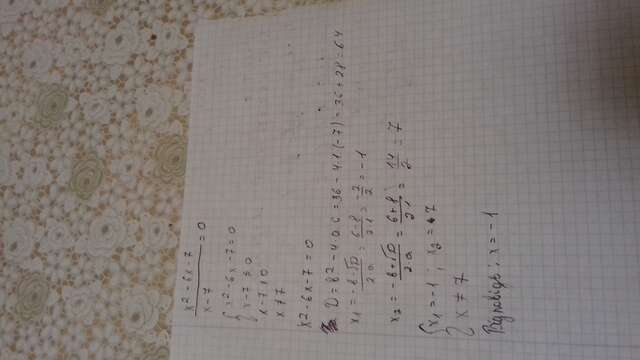 x²-6x-7
x-7 = 0
{ x²-6x-7=0
x-7≠0
x-7≠0
x≠7
x²-6x-7=0
D=b²-4ac=36-4·1·(-7)=36+28=64
x₁ = (-b-√D)/(2a) = (6-8)/(2·1) = -2/2 = -1
x₂ = (-b+√D)/(2a) = (6+8)/(2·1) = 14/2 = 7
{ x₁=-1 ; x₂=7
x≠7
Відповідь: x=-1